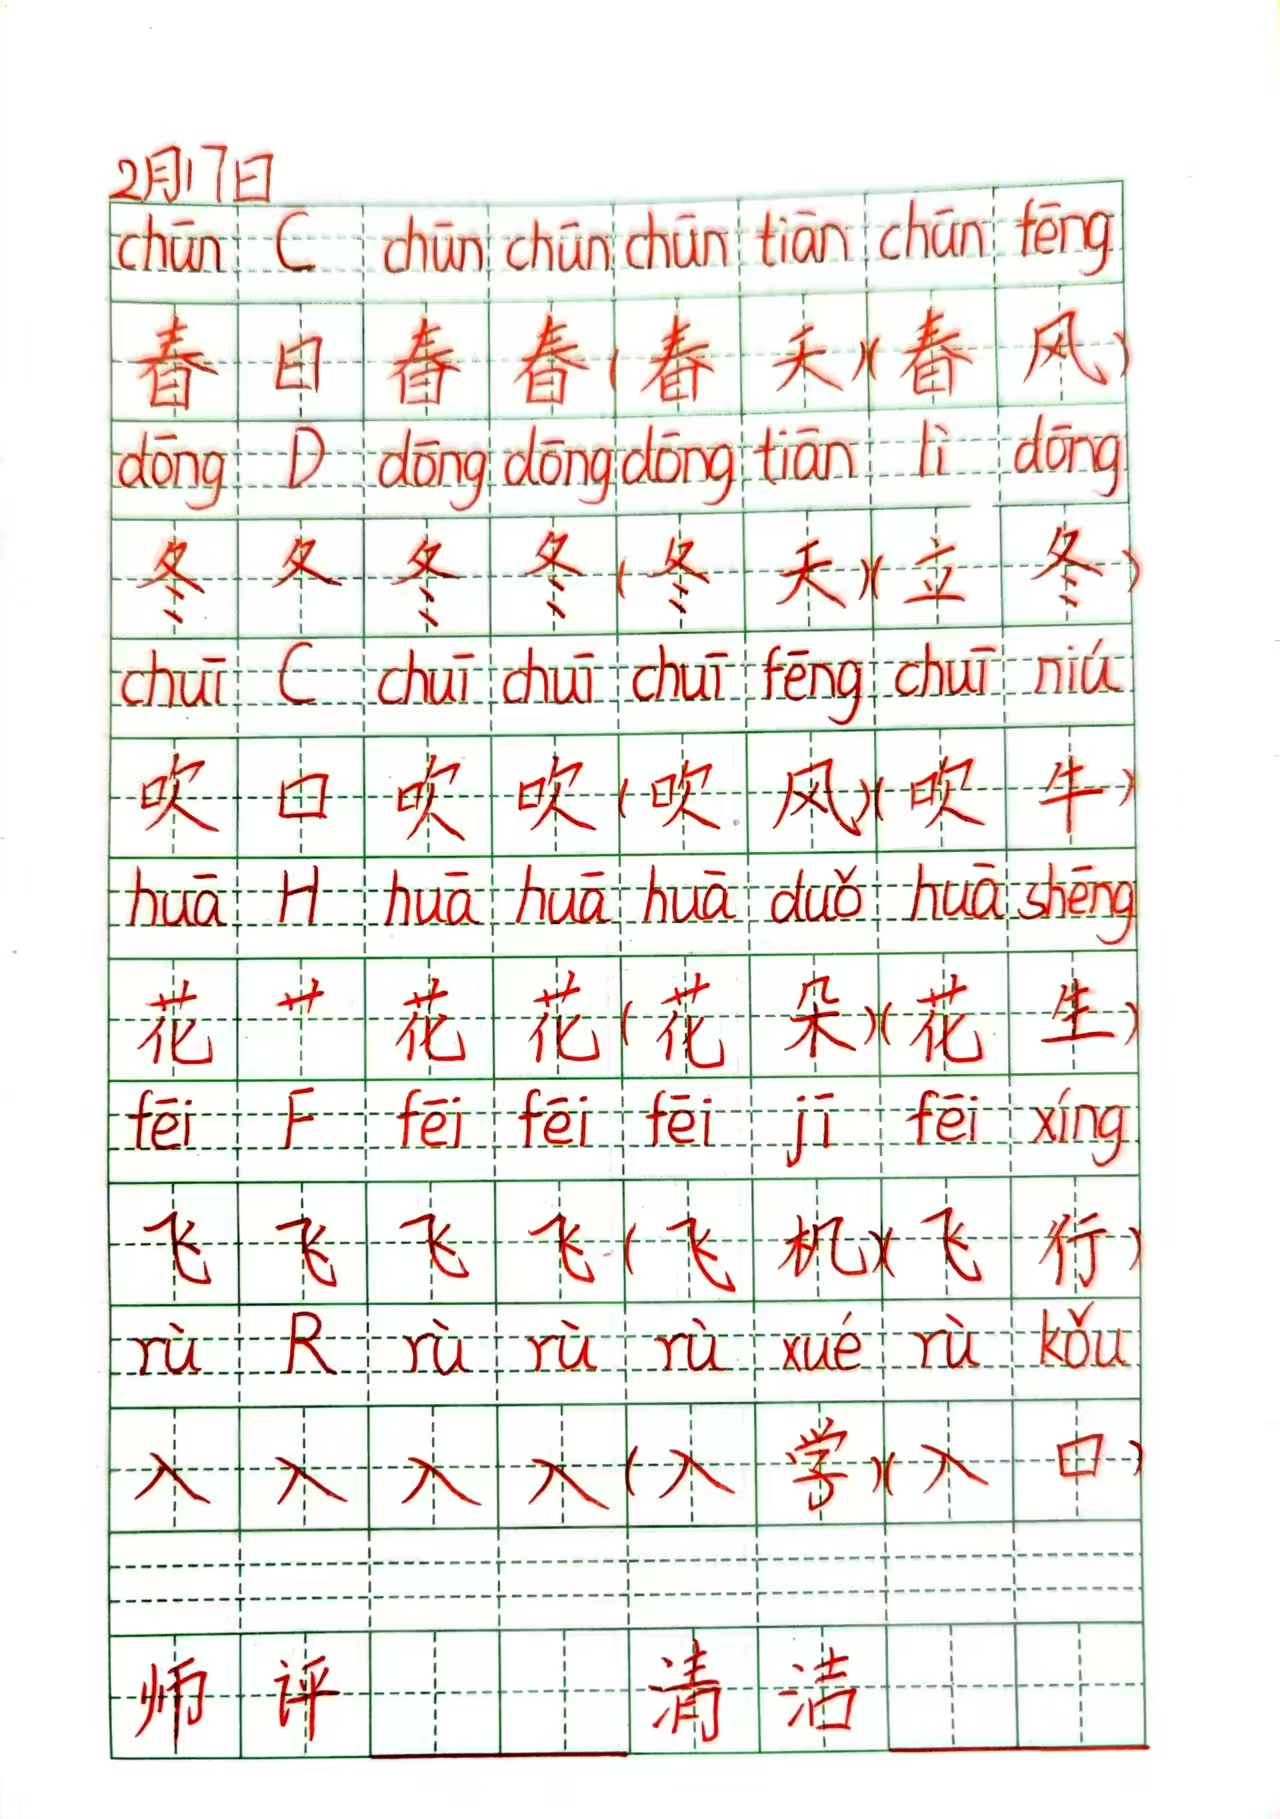 2月17日
chūn C chūn chūn chūn tiān chūn fēng
春 日 春 春 (春 天)(春 风)
dōng D dōng dōng dōng tiān lì dōng
冬 夂 冬 冬 (冬 天)(立 冬)
chuī C chuī chuī chuī fēng chuī niú
吹 口 吹 吹 (吹 风)(吹 牛)
huā H huā huā huā duǒ huā shēng
花 艹 花 花 (花 朵)(花 生)
fēi F fēi fēi fēi jī fēi xíng
飞 飞 飞 飞 (飞 机)(飞 行)
rù R rù rù rù xué rù kǒu
入 入 入 入 (入 学)(入 口)
师 评 清 洁